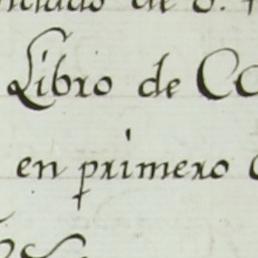 de
Libro de CC
en primero